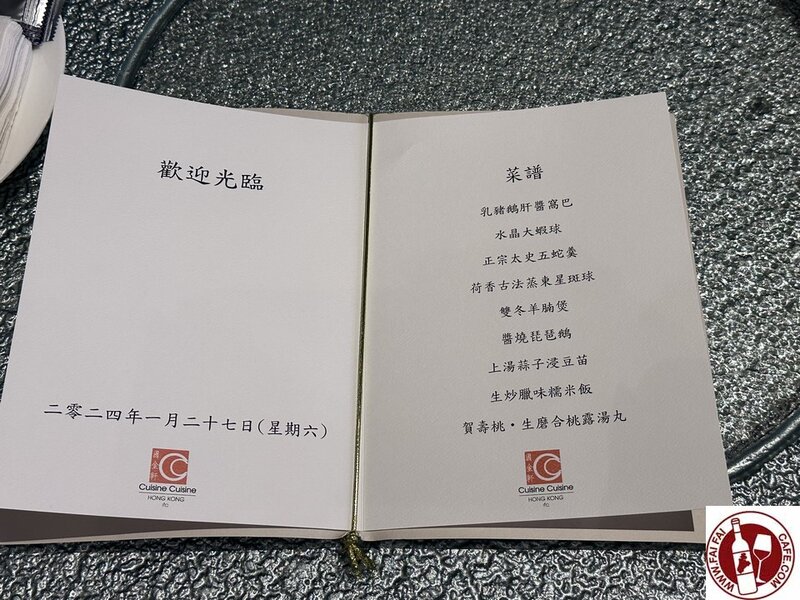 歡迎光臨
二零二四年一月二十七日(星期六)
國金軒
Cuisine Cuisine
HONG KONG
ifc
菜譜
乳豬鵝肝醬窩巴
水晶大蝦球
正宗太史五蛇羹
荷香古法蒸東星斑球
雙冬羊腩煲
醬燒琵琶鵝
上湯蒜子浸豆苗
生炒臘味糯米飯
賀壽桃·生磨合桃露湯丸
國金軒
Cuisine Cuisine
HONG KONG
ifc
WWW.FAI FAI CAFE.COM